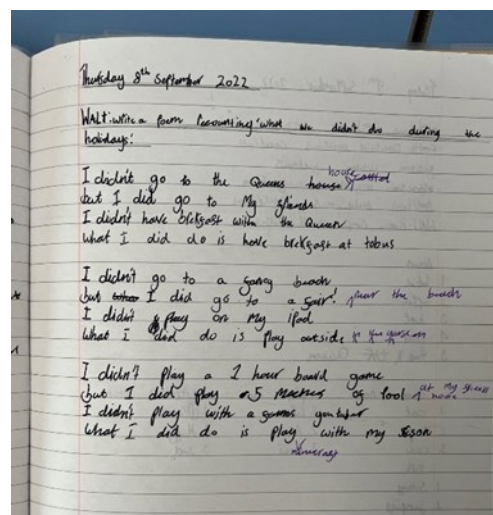 Thursday 8th September 2022
WALT: write a Poem Recounting 'what we didn't do during the
holidays'
I didn't go to the Queens house
but I did go to My friends house
I didn't have brekfast with the Queen
What I did do is have brekfast at tobus
I didn't go to a fancy beach
but I did go to a fair! near the beach
I didn't play on My ipad
What I did do is play outside in the garden
I didn't play a 1 hour board game
but I did play 5 matches of fool at My house
I didn't play with a famous youtuber
What I did do is play with my